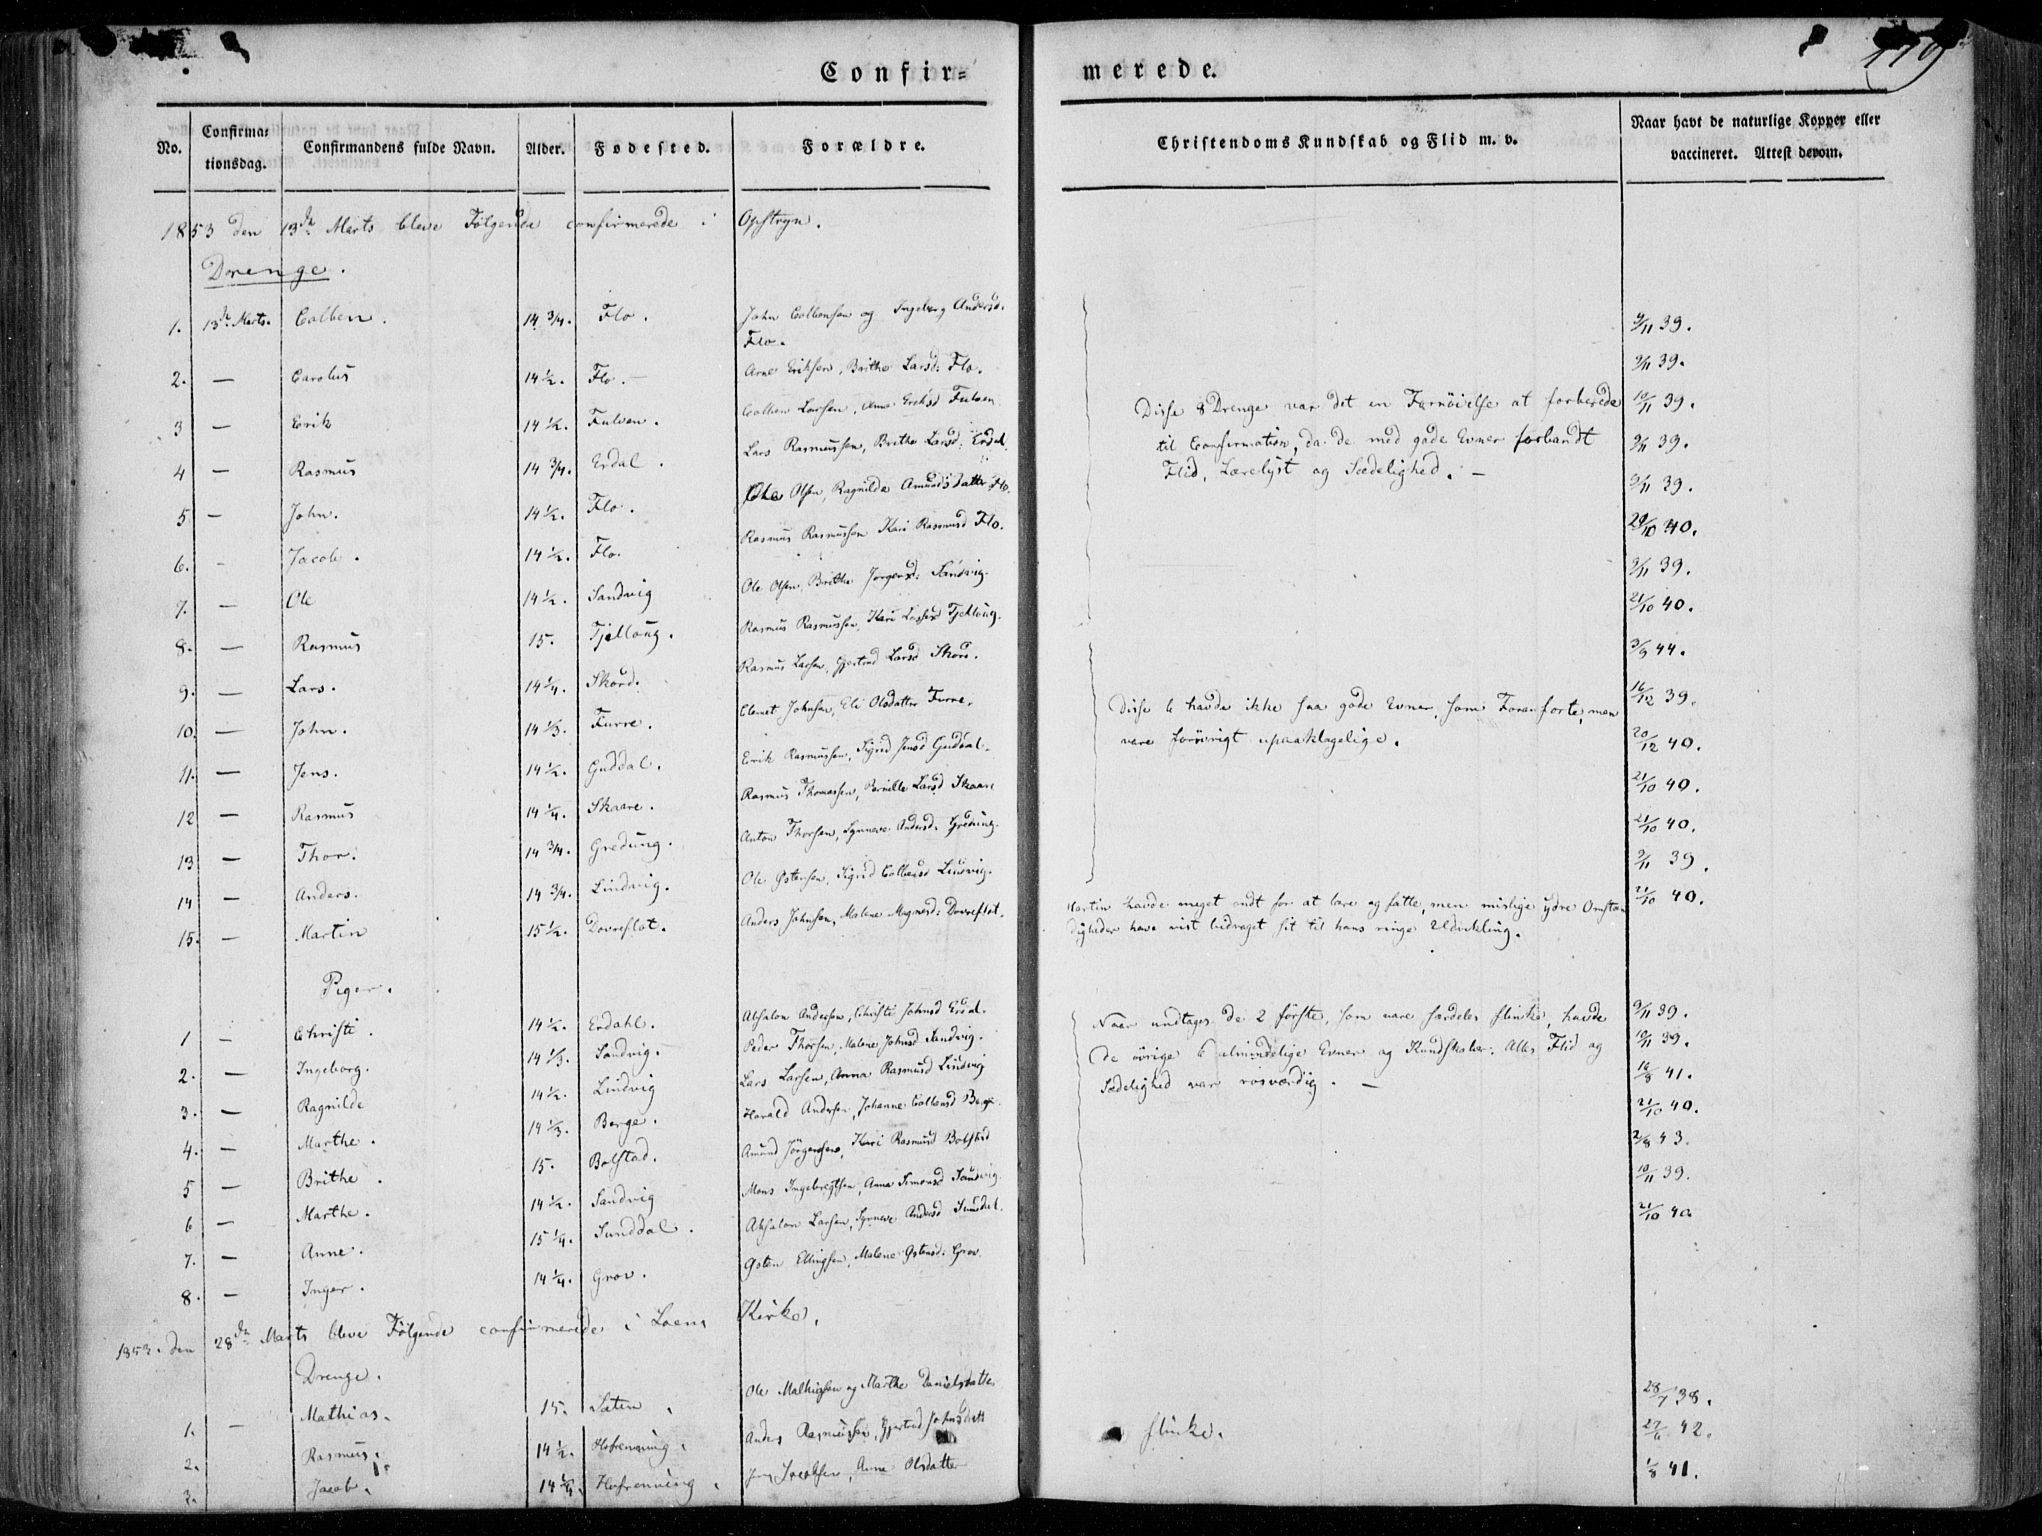 Confir=
merede.
179
No.
Confirma=
tionsdag.
Confirmandens fulde Navn.
Alder.
Fødested.
Forældre.
Christendoms Kundskab og Flid m. v.
Naar havt de naturlige Kopper eller
vaccineret. Attest derom.
1853 den 13de Marts bleve Følgende confirmerede i Opstryn.
Drenge.
1. 13de Marts. Colben. 14 3/4. Flo. John Colbensen og Ingeborg Andersd. 9/11 39.
Flo.
2. — Carolus 14 1/2. Flo. — Arne Eriksen, Brithe Larsd: Flo. 9/11 39.
3 — Erik 14 1/2. Fulven. Colben Larsen, Anna Eriksd Fulven 10/11 39.
4 — Rasmus 14 3/4. Erdal. Lars Rasmussen, Brithe Larsd: Erdal. 9/11 39.
5 — John. 14 1/2. Flo. Ole Olsen, Ragnilde Amundsdatter Flo. 9/11 39.
6. - Jacob. 14 1/2. Flo. Rasmus Rasmussen Kari Rasmusd Flo. 20/10 40.
7. — Ole 14 1/2. Sandvig Ole Olsen, Brithe Jørgensd: Sandvig. 9/11 39.
8. — Rasmus 15. Tjellaug. Rasmus Rasmussen, Kari Larsd Tjellaug. 21/10 40.
Disse 8 Drenge var det en Fornøielse at forberede
til Confirmation, da de med gode Evner forbandt
Flid, Lærelyst og Sædelighed. —
9. — Lars. 14 1/4. Skørd. Rasmus Larsen, Gjertrud Larsd Skørd. 3/9 44.
10. — John. 14 1/3. Furre. Clemet Johnsen, Eli Olsdatter Furre. 16/12 39.
11. — Jens. 14 1/2. Guddal. Erik Rasmussen, Sigrid Jensd Guddal. 20/12 40.
12 — Rasmus 14 1/4. Skaare. Rasmus Thomassen, Pernille Larsd Skaare 21/10 40.
13 — Thor. 14 3/4. Gredung. Anton Thorsen, Synneve Andersd: Gredung. 21/10 40.
14 — Anders. 14 3/4. Lindvig. Ole Østensen, Sigrid Colbensd Lindvig. 9/11 39.
Disse 6 havde ikke saa gode Evner, som Foranførte, men
vare forøvrigt upaaklagelige.
15. — Martin 15 1/2. Dovreflot. Anders Johnsen, Malene Magnusd: Dovreflot. 21/10 40.
Martin havde meget ondt for at lære og fatte, men mislige ydre Omstæn
digheder have vist bidraget sit til hans ringe Udvikling.
Piger.
1 — Christi. 14 1/2. Erdahl. Absalon Andersen, Christi Johnsd Erdal. 9/11 39.
2. — Ingeborg. 14 1/3. Sandvig. Peder Thorsen, Malene Johnsd Sandvig. 10/11 39.
3. — Ragnilde 14 1/2. Lindvig Lars Larsen, Anna Rasmusd Lindvig 16/8 41.
4. — Marthe. 14 1/3. Berge. Harald Andersen, Johanne Colbensd Berge. 21/10 40.
5 — Brithe. 15. Bolstad. Amund Jørgensen, Kari Rasmusd Bolstad 2/8 43.
6 — Marthe. 14 1/2. Sandvig Mons Ingebregtsen, Anna Simonsd Sandvig. 10/11 39.
7. — Anne. 15 1/4. Sunddal. Absalon Larsen, Synneve Andersd Sunddal. 21/10 40
8. — Inger. 14 1/4. Grov. Østen Ellingsen, Malene Østensd: Grov
Naar undtages de 2 første, som vare særdeles flinke, havde
de øvrige 6 almindelige Evner og Kundskaber. Alles Flid og
Sædelighed var rosværdig. —
1853. den 28de Marts bleve Følgende confirmerede i Loens Kirke.
Drenge.
1. — Mathias. 15. Sæten. Ole Mathiassen og Marthe Danielsdatter 28/7 38.
2. Rasmus. 14 1/2. Hofrenning. Anders Rasmussen, Gjertrud Johnsdatt flinke. 27/6 42.
3. Jacob. 14 1/4. Hofrenning. Jacobsen, Anne Olsdatter 1/8 41.